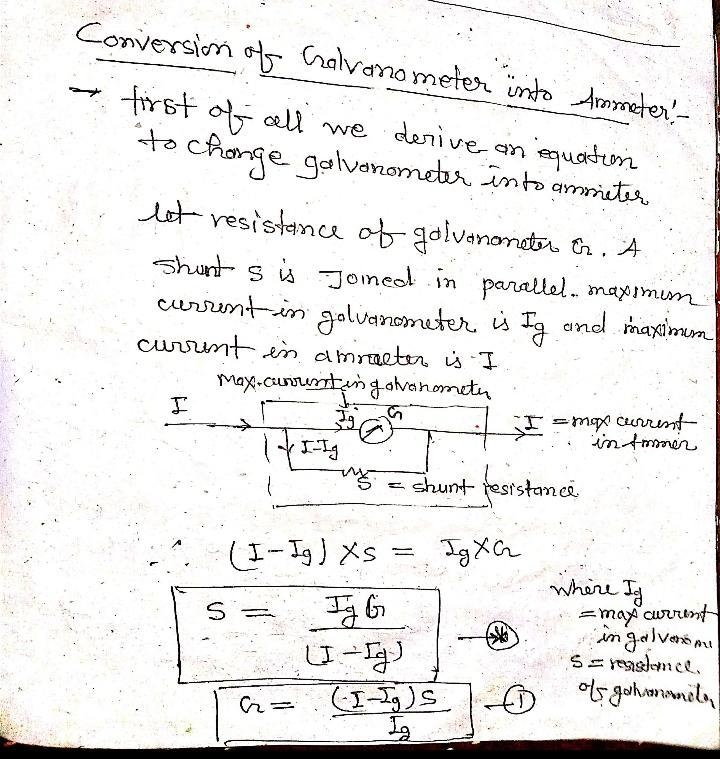 Conversion of Galvanometer into Ammeter:-
→ first of all we derive an equation
to change galvanometer into ammeter
let resistance of galvanometer G. A
shunt S is Joined in parallel. maximum
current in galvanometer is Ig and maximum
current in ammeter is I
max. current in galvanometer
I
Ig G
I = max current
in Ammer
I-Ig
S = shunt resistance
∴ (I-Ig) X S = Ig X G
S = Ig G / (I-Ig)
where Ig
= max current
in galvanome
S = resistance
of galvanometer
G = (I-Ig) S / Ig - ①